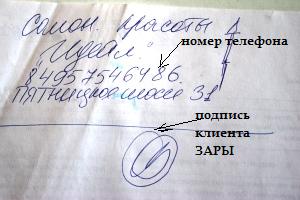 Салон красоты
"Идеал"
номер телефона
84957546486
Пятницкое шоссе 31
подпись
клиента
ЗАРЫ